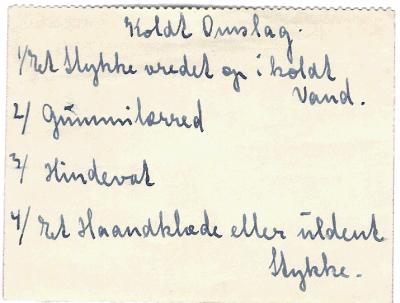 Koldt Omslag.
1/ Et Stykke vredet op i koldt
Vand.
2/ Gummilærred
3/ Hindevat
4/ Et Haandklæde eller uldent
Stykke.